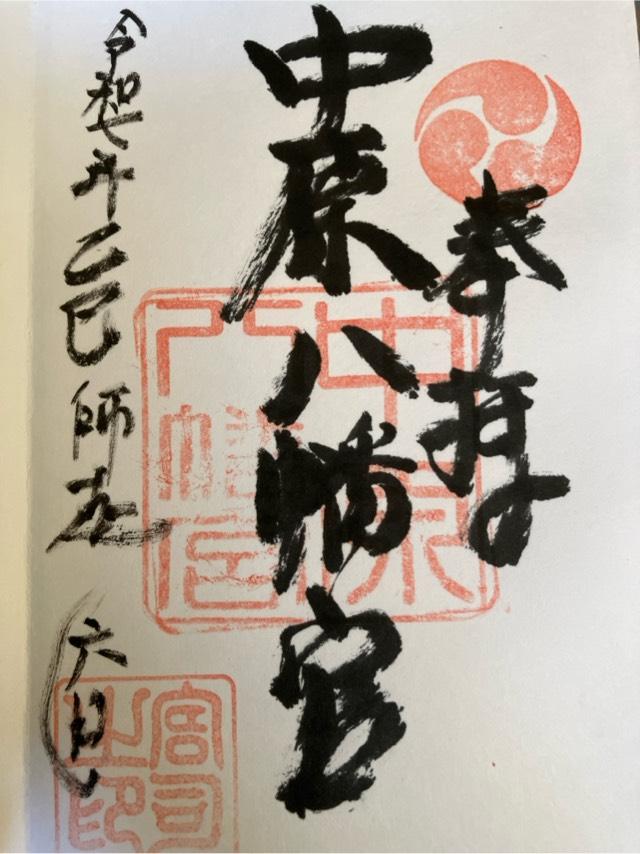 奉拝
中原八幡宮
令和七年乙巳師走六日
中原八幡宮
宮司之印